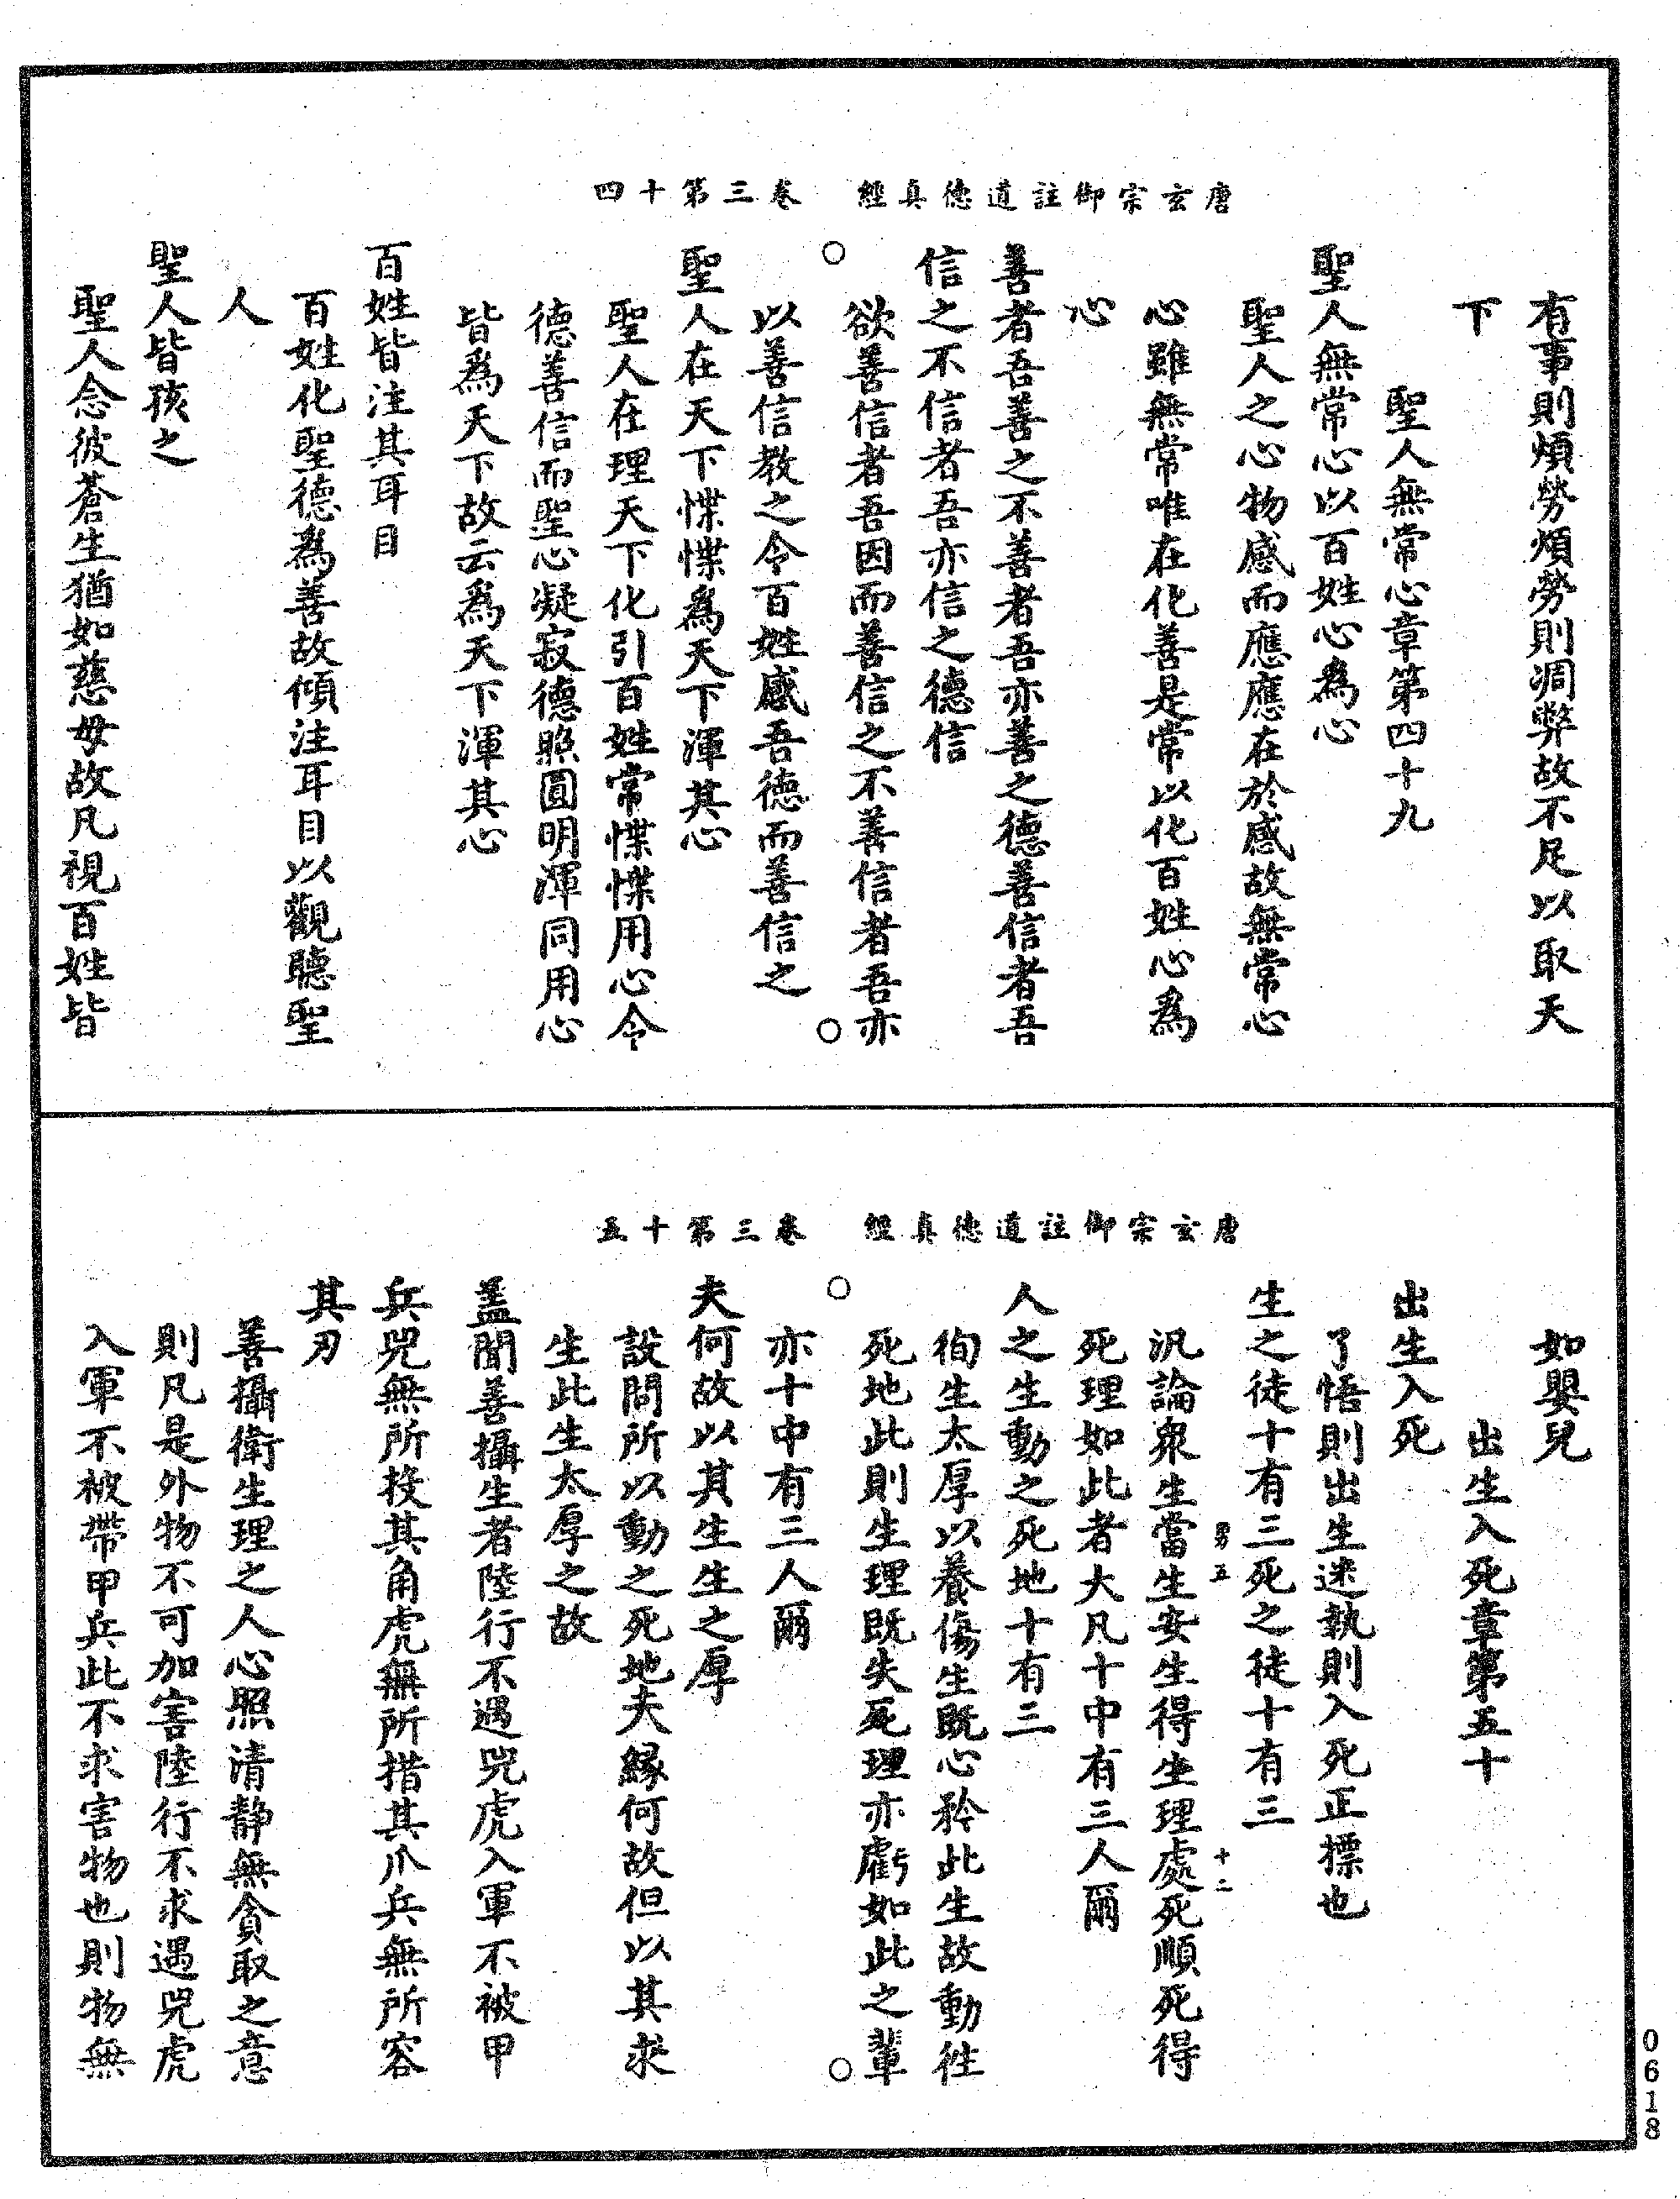 唐玄宗御註道德真經　卷三第十四
有事則煩勞煩勞則凋弊故不足以取天
下
聖人無常心章第四十九
聖人無常心以百姓心為心
聖人之心物感而應應在於感故無常心
心雖無常唯在化善是常以化百姓心為
心
善者吾善之不善者吾亦善之德善信者吾
信之不信者吾亦信之德信
欲善信者吾因而善信之不善信者吾亦
以善信教之令百姓感吾德而善信之
聖人在天下惵惵為天下渾其心
聖人在理天下化引百姓常惵惵用心令
德善信而聖心凝寂德照圓明渾同用心
皆為天下故云為天下渾其心
百姓皆注其耳目
百姓化聖德為善故傾注耳目以觀聽聖
人
聖人皆孩之
聖人念彼蒼生猶如慈母故凡視百姓皆
唐玄宗御註道德真經　卷三第十五
如嬰兒
出生入死章第五十
出生入死
了悟則出生迷執則入死正摽也
生之徒十有三死之徒十有三
五　十二
汎論衆生當生安生得生理處死順死得
死理如此者大凡十中有三人爾
人之生動之死地十有三
徇生太厚以養傷生既心矜此生故動往
死地此則生理既失死理亦虧如此之輩
亦十中有三人爾
夫何故以其生生之厚
設問所以動之死地夫緣何故但以其求
生此生太厚之故
蓋聞善攝生者陸行不遇兕虎入軍不被甲
兵兕無所投其角虎無所措其爪兵無所容
其刃
善攝衛生理之人心照清靜無貪取之意
則凡是外物不可加害陸行不求遇兕虎
入軍不被帶甲兵此不求害物也則物無
0618